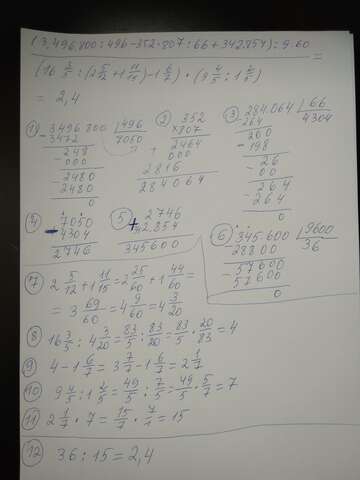 (3.496.800:496-352·807:66+342.854):9.60
(16 3/5:(2 5/12+1 11/15)-1 6/7)·(9 4/5:1 2/5) =
= 2,4
1) 3496.800 | 496
-3472 7050
248
-000
-2480
2480
0
2) 352
×807
2464
+ 000
2816
284064
3) 284.064 | 66
-264 4304
200
-198
26
-00
264
-264
0
4) 7050
-4304
2746
5) 2746
+ 342.854
345600
6) 345600 | 9600
-28800 36
57600
-57600
0
7) 2 5/12+1 11/15=2 25/60+1 44/60=
=3 69/60=4 9/60=4 3/20
8) 16 3/5:4 3/20=83/5:83/20=83/5·20/83=4
9) 4-1 6/7=3 7/7-1 6/7=2 1/7
10) 9 4/5:1 2/5=49/5:7/5=49/5·5/7=7
11) 2 1/7·7=15/7·7/1=15
12) 36:15=2,4